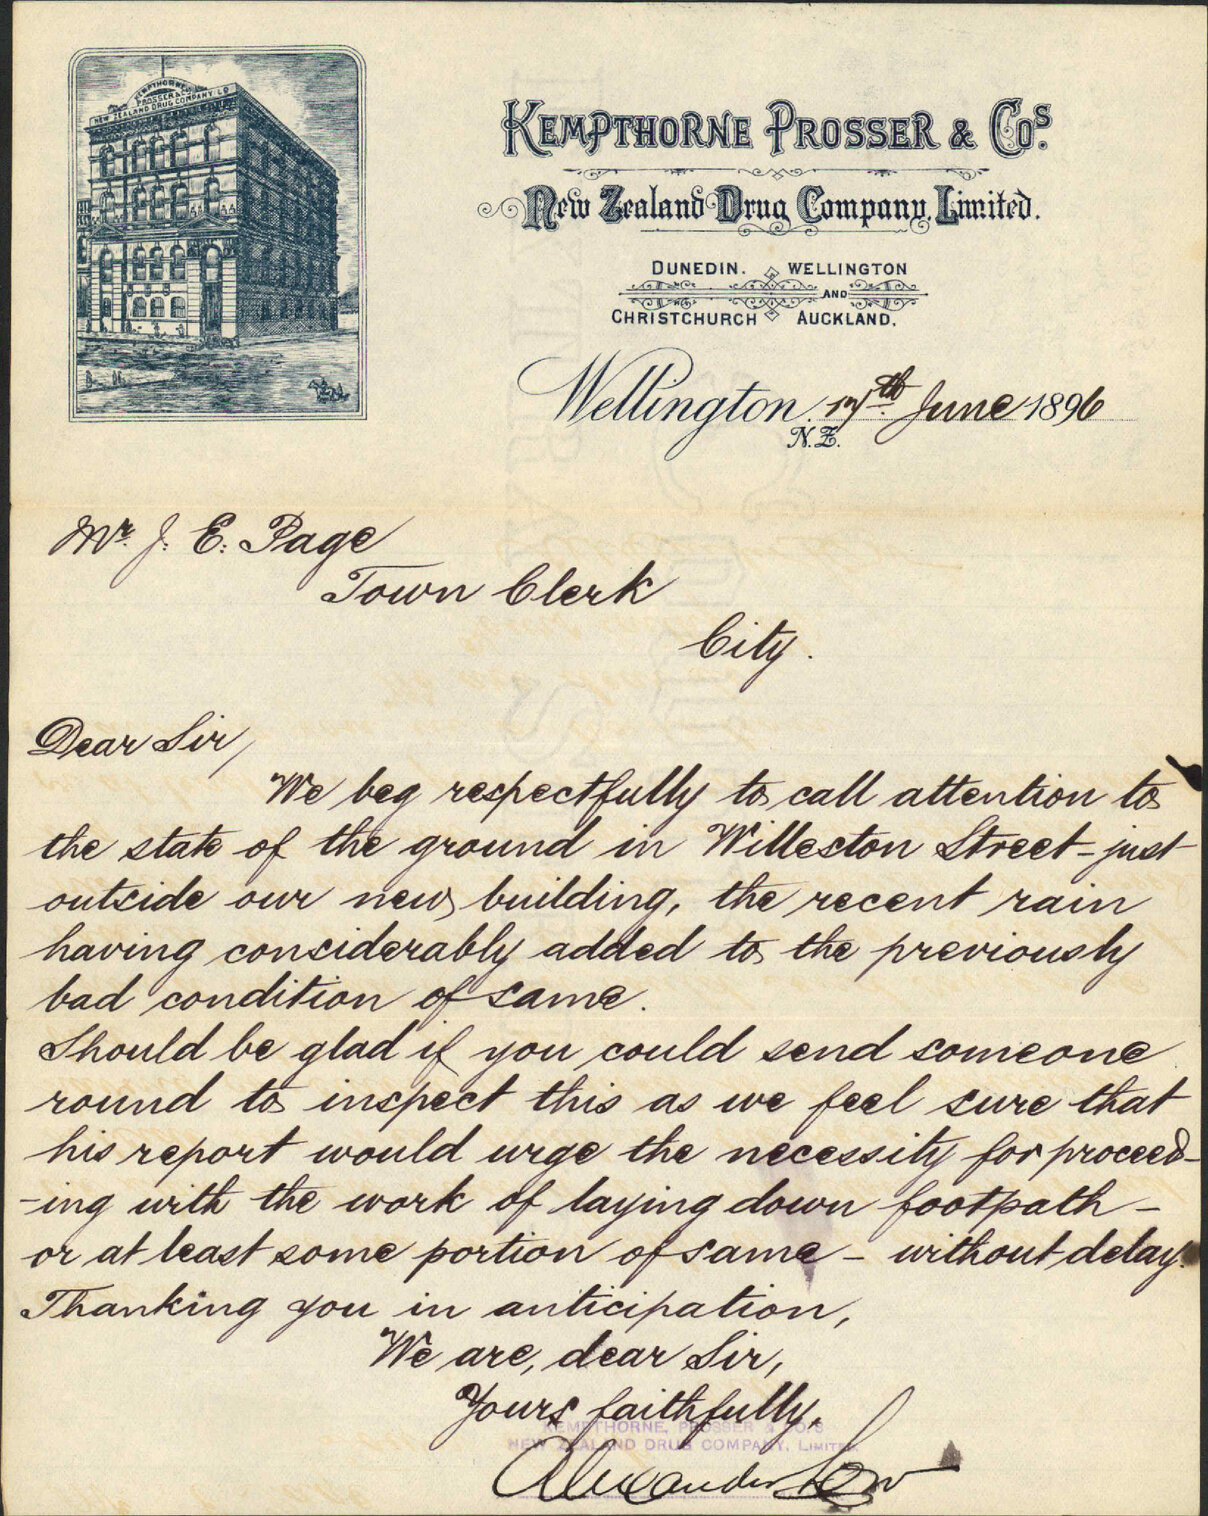 KEMPTHORNE
PROSSER & Cos
NEW ZEALAND DRUG COMPANY LD
KEMPTHORNE PROSSER & Cos.
New Zealand Drug Company, Limited.
DUNEDIN. WELLINGTON
AND
CHRISTCHURCH AUCKLAND.
Wellington, 17th June 1896
N.Z.
Mr. J. E. Page
Town Clerk
City.
Dear Sir,
We beg respectfully to call attention to
the state of the ground in Willeston Street - just
outside our new building, the recent rain
having considerably added to the previously
bad condition of same.
Should be glad if you could send someone
round to inspect this as we feel sure that
his report would urge the necessity for proceed-
-ing with the work of laying down footpath -
or at least some portion of same - without delay.
Thanking you in anticipation,
We are, dear Sir,
Yours faithfully,
KEMPTHORNE, PROSSER & CO.'S
NEW ZEALAND DRUG COMPANY, LIMITED.
Alexander Low